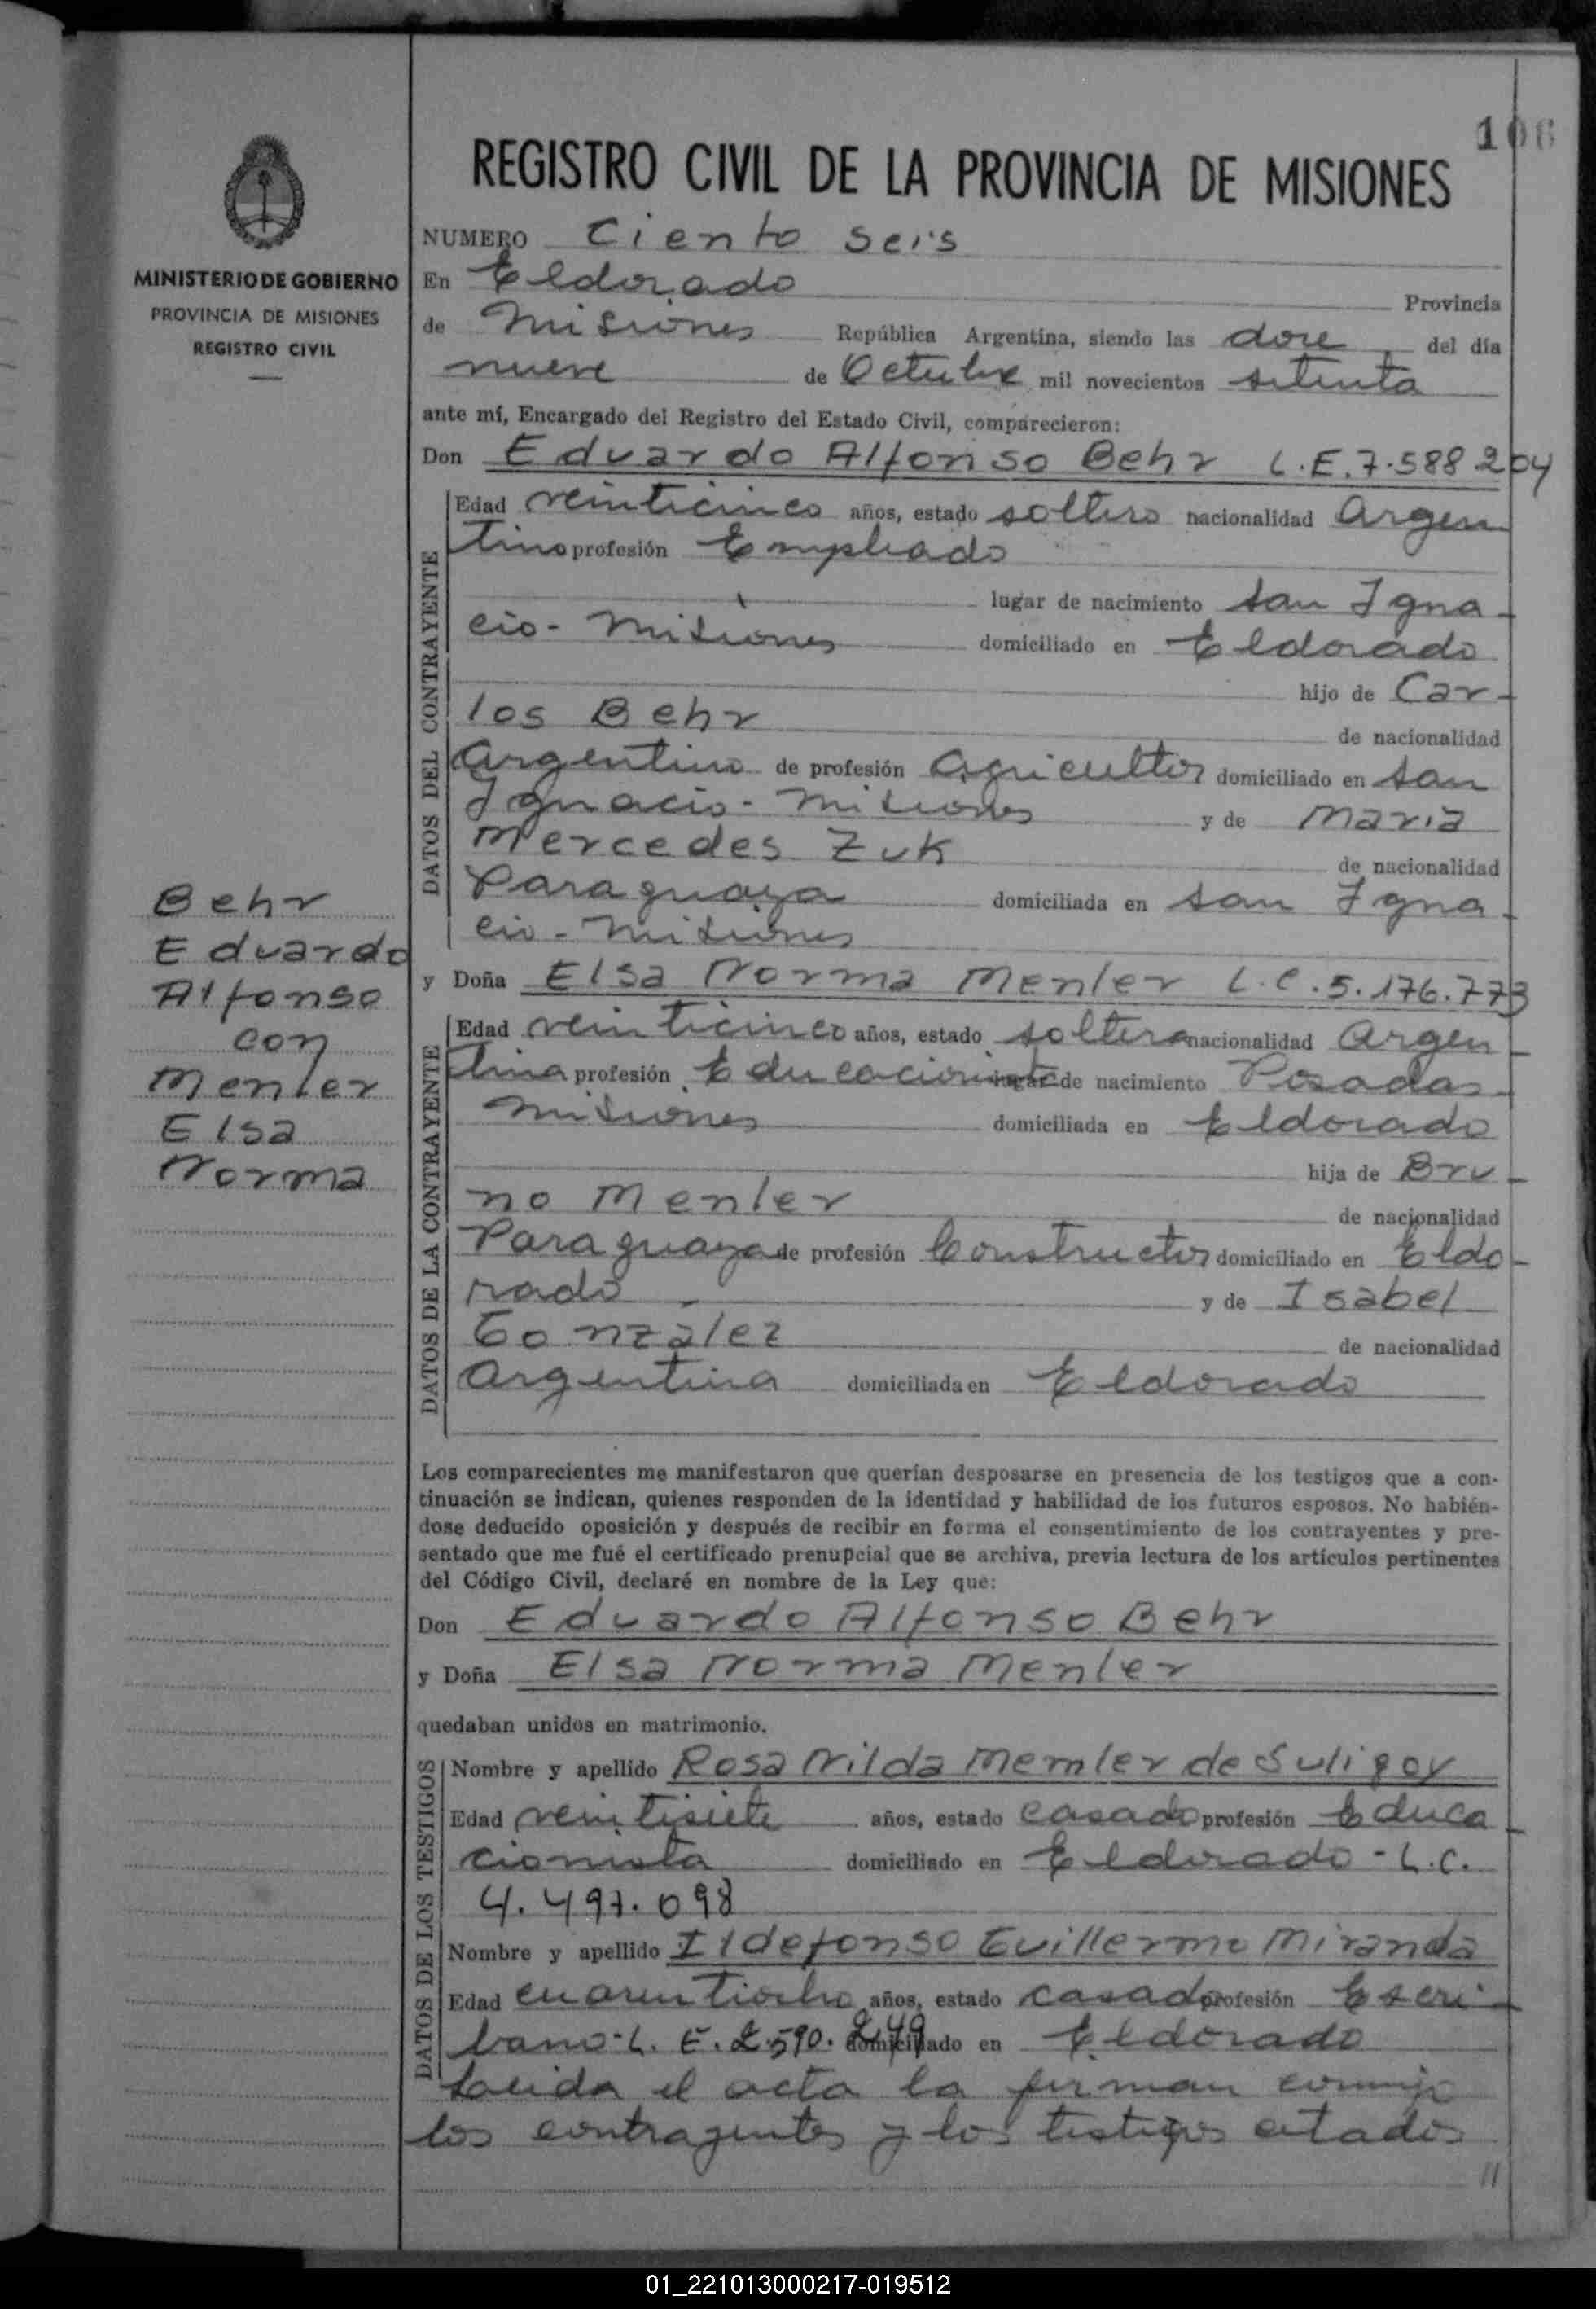 106
REGISTRO CIVIL DE LA PROVINCIA DE MISIONES
MINISTERIO DE GOBIERNO
PROVINCIA DE MISIONES
REGISTRO CIVIL
NUMERO Ciento Seis
En Eldorado Provincia
de Misiones República Argentina, siendo las doce del día
nueve de Octubre mil novecientos setenta
ante mí, Encargado del Registro del Estado Civil, comparecieron:
Don Eduardo Alfonso Behr L.E. 7.588204
DATOS DEL CONTRAYENTE
Edad veinticinco años, estado soltero nacionalidad Argen
tino profesión Empleado
lugar de nacimiento San Igna
cio - Misiones domiciliado en Eldorado
hijo de Car
los Behr de nacionalidad
Argentino de profesión Agricultor domiciliado en San
Ignacio - Misiones y de Maria
Mercedes Zuk de nacionalidad
Paraguaya domiciliada en San Igna
cio - Misiones
y Doña Elsa Norma Menler L.C. 5.176.773
DATOS DE LA CONTRAYENTE
Edad veinticinco años, estado soltera nacionalidad Argen
tina profesión Educacionista lugar de nacimiento Posadas
Misiones domiciliada en Eldorado
hija de Bru
no Menler de nacionalidad
Paraguaya de profesión Constructor domiciliado en Eldo
rado y de Isabel
Gonzalez de nacionalidad
Argentina domiciliada en Eldorado
Behr
Eduardo
Alfonso
con
Menler
Elsa
Norma
Los comparecientes me manifestaron que querían desposarse en presencia de los testigos que a con-
tinuación se indican, quienes responden de la identidad y habilidad de los futuros esposos. No habién-
dose deducido oposición y después de recibir en forma el consentimiento de los contrayentes y pre-
sentado que me fué el certificado prenupcial que se archiva, previa lectura de los artículos pertinentes
del Código Civil, declaré en nombre de la Ley que:
Don Eduardo Alfonso Behr
y Doña Elsa Norma Menler
quedaban unidos en matrimonio.
DATOS DE LOS TESTIGOS
Nombre y apellido Rosa Nilda Memler de Suligoy
Edad veintisiete años, estado casado profesión Educa
cionista domiciliado en Eldorado - L.C.
4.497.098
Nombre y apellido Ildefonso Guillermo Miranda
Edad cuarentiocho años, estado casado profesión Escri
bano - L. E. 2.590. domiciliado en Eldorado
Leida el acta la firman conmigo
los contrayentes y los testigos citados
//
01_221013000217-019512